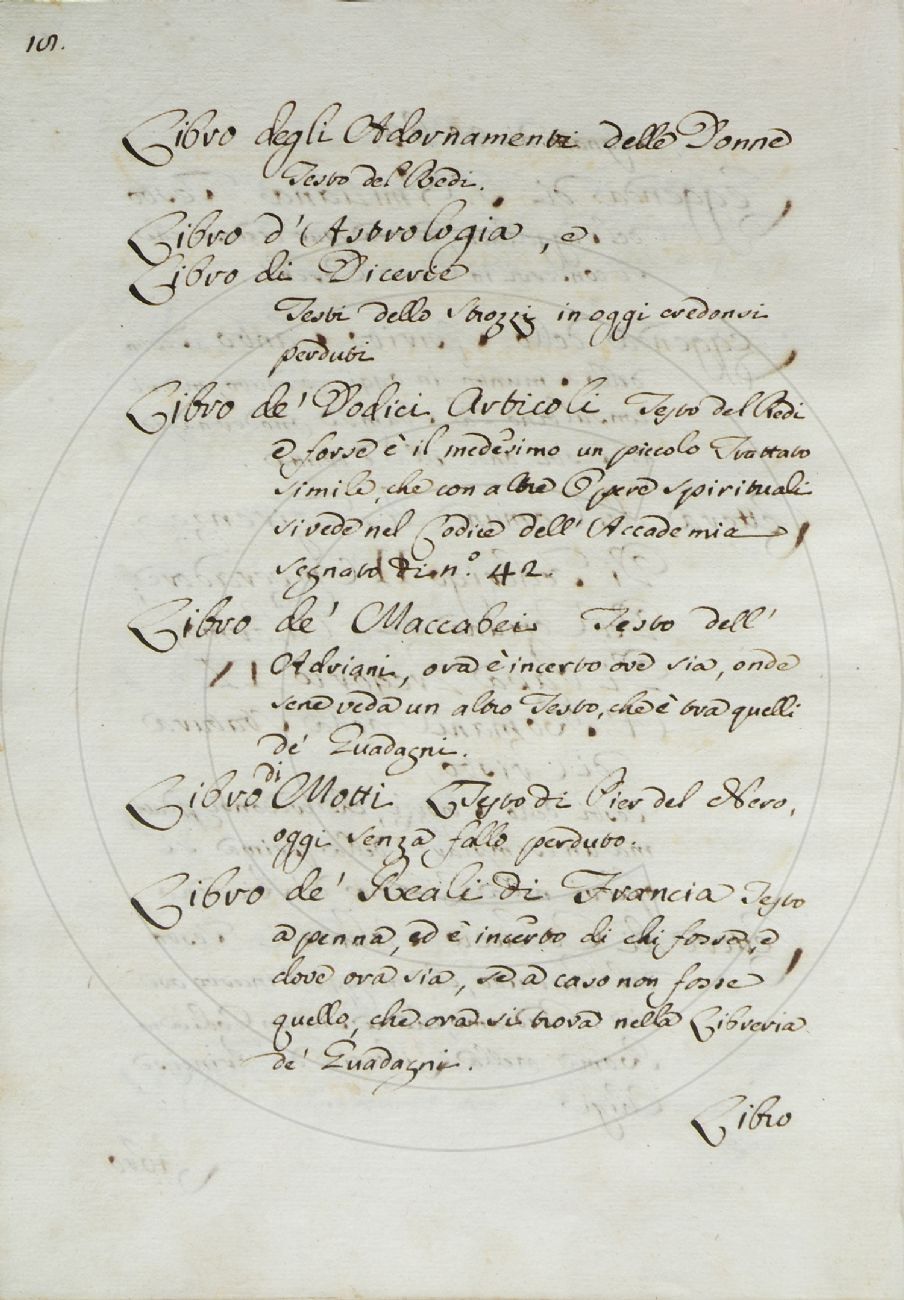 Libro degli Adornamenti delle Donne
Testo del Redi.
Libro d'Astrologia, e
Libro di Dicerie
Testi dello Strozzi in oggi credonsi
perduti
Libro de' Dodici Articoli Testo del Redi
e forse è il medesimo un piccolo Trattato
simile, che con altre Opere spirituali
si vede nel Codice dell'Accademia
segnato di n.º 42.
Libro de' Maccabei Testo dell'
Adriani, ora è incerto ove sia, onde
sene veda un altro Testo, che è tra quelli
de' Guadagni.
Libro di Motti Testo di Pier del Nero,
oggi senza fallo perduto.
Libro de' Reali di Francia Testo
a penna, ed è incerto di chi fosse, e
dove ora sia, se a caso non fosse
quello, che ora si trova nella Libreria
de' Guadagni.
Libro